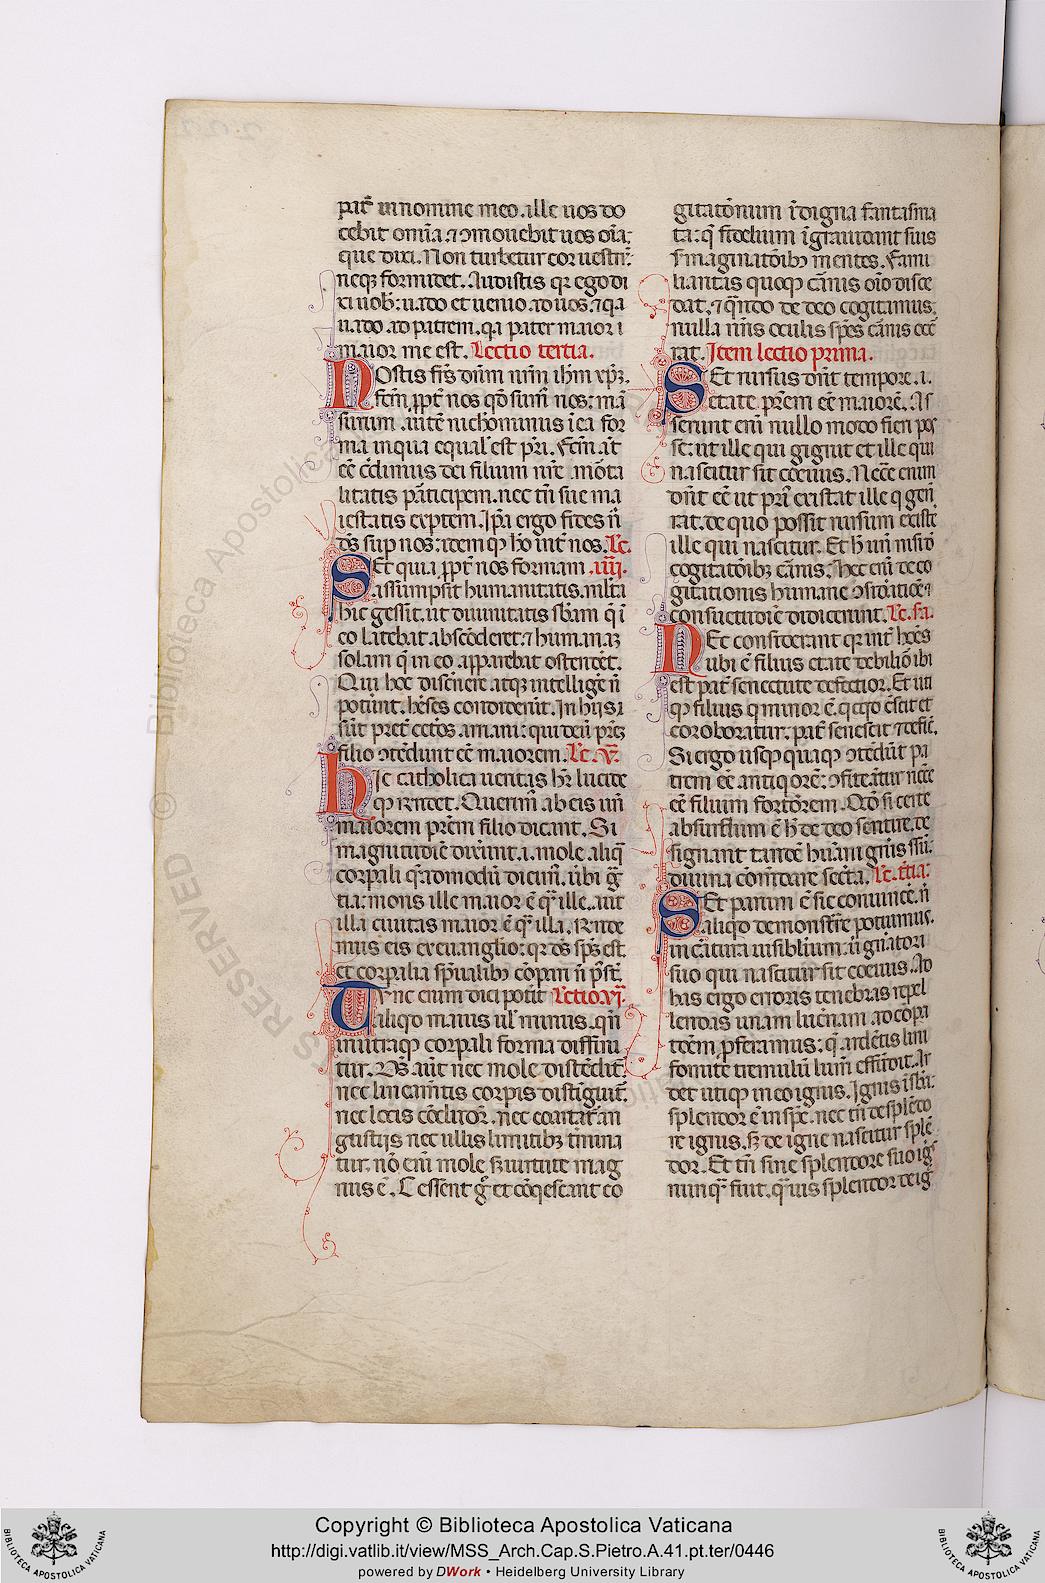 pat̃ in nomine meo. ille uos do
cebit omnia. ⁊ ꝯmouebit uos oĩa;
que dixi. Non turbetur cor uestrũ:
neqȝ formidet. Audistis qꝛ ego di
xi uob̃: uado et uenio ad uos. ⁊ q̃a
uado ad patrem, q̃a pater maior ĩ
maior me est. Lectio tertia.
NOstis fr̃s dñm nr̃m ih̃m xp̃ȝ.
ꝓpt̃ nos
surum autem nichominus ĩ ea for
ma in qua equal̃ est pr̃i.
eẽ c̃dimus dei filium
litatis p̃ticipem. nec tñ sue ma
iestatis exp̃tem. Ip̃a ergo fides ñ
d̃s sup nos: idem qȝ ho int̃ nos. Lc̃.
SEt quia ꝓpt̃ nos formam .iiij.
assumpsit humanitatis. mlta
hic gessit. ut diuinitatis s̃bam q̃ ĩ
eo latebat. absc̃deret ⁊ humanaȝ
solam q̃ in eo apparebat ostendẽt.
Qui hoc discnẽre. atqȝ intelligẽ ñ
potũnt. hẽses condidenũt. In hijs
filio ꝯtẽdunt eẽ maiorem. Lc̃. v̄.
HIc catholica ueritas
Querim̃ ab eis un̄
maiorem pr̃em filio dicant. Si
magnitudĩe dixũnt. i. mole aliq̃
corp̃ali q̃admodũ dicim̃. ubi g̃
tia: mons ille maior ẽ q̃ ille. aut
illa ciuitas maior ẽ q̃ illa. R̃nde
mus eis ex euanglio: qꝛ d̃s sp̃s est.
et corp̃alia sp̃ualibȝ cõpari ñ p̃st̃.
TVnc enim dici potit̃ Lectio vj̃.
aliqd maius ul̃ minus. qñ
in utraqȝ corp̃ali forma diffini
tur. D̃s aũt nec mole distẽdit̃.
nec lin̄camt̃is corp̃is distĩguit̃.
nec locis cõcludit̃. nec coartat̃ an
gustijs nec ullis limitibȝ t̃mina
tur. nõ enĩ mole sȝ uirtute mag
nus ẽ. Cessent g̃ et cõq̃escant co
gitatõnum ĩdigna fantasma
ta: q̃ fidelium ĩgrauidant suis
ẽmaginatõibȝ mentes. Fami
liaritas quoqȝ c̃nis oĩo disce
dat. ⁊ q̃ndo de deo cogitamus;
nulla nr̃is oculis sp̃s c̃nis occ̃
rat. Item lectio prima.
SEt rursus dñt tempore .i.
etate pr̃em eẽ maiorẽ. As
serunt enĩ nullo modo fieri pos
se: ut ille qui gignit et ille qui
nascitur sit coeuus. Necẽ enim
dñt eẽ ut pri⁹ existat ille q gen̄
rat. de quo possit rursum existẽ
ille qui nascitur. Et h̃ nñ nisi õ
cogitatõibȝ c̃nis. hec enĩ de co
gitationis humane ꝯsidatiõe ⁊
consuetudĩe didicerunt. Lc̃. s̃a.
NEc consideant qꝛ int̃ hoĩes
ubi ẽ filius etate debiliõ ibi
est pat̃ senectute defectior. Et uñ
qȝ filius q minor ẽ. c̃scit et
coroboratur. pat̃ senescit ⁊ defic̃.
Si ergo usqȝ quaqȝ ꝯtẽdũt pa
trem eẽ antiq̃orẽ: ꝯfitẽtur necẽẽ
eẽ filium fortõrem. Qd si certe
absurdum ẽ h̃ de deo sentire. de
signant tandẽ hũani gñis ssũ.
diuina cõm̃dare sect̃a. Lc̃. t̃tia:
SEt parum ẽ sic conuincẽ. ñ
aliqd demonstr̃e potuimus.
in c̃atura uisiblium: ñ gñatori
suo qui nascitur sit coeuus. Ad
has ergo erroris tenebras repel
lendas unam luc̃nam ad cõpa
tõem ꝓferamus: q̃ ardẽtis lini
fomite tremulũ lum̃ effũdit. Ar
det utiqȝ in co ignis. Ignis ĩsbñ:
splendor ẽ in spẽ. nec tñ de splẽdo
re ignis. sȝ de igne nascitur splẽ
dor. Et tñ sine splendore suo ig̃
nunq̃ fuit. q̃uis splendor de ig̃
Copyright © Biblioteca Apostolica Vaticana
http://digi.vatlib.it/view/MSS_Arch.Cap.S.Pietro.A.41.pt.ter/0446
powered by DWork • Heidelberg University Library